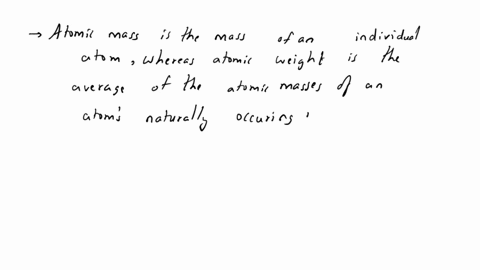 → Atomic mass is the mass of an individual
atom, whereas atomic weight is the
average of the atomic masses of an
atom's naturally occuring